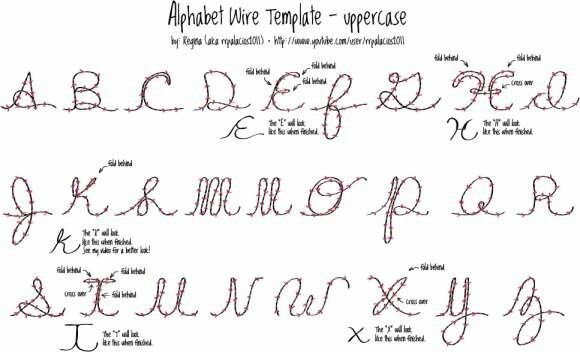 Alphabet Wire Template - uppercase
by: Regina (aka rrpalacios1011) - http://www.youtube.com/user/rrpalacios1011
fold behind
fold behind
fold behind
fold behind
fold behind
cross over
A B C D E F G H I
The "E" will look
like this when finished.
E
The "H" will look
like this when finished.
H
fold behind
J K L M N O P Q R
The "K" will look
like this when finished.
See my video for a better look!
K
fold behind
fold behind
cross over
fold behind
fold behind
cross over
S T U V W X Y Z
The "T" will look
like this when finished.
T
The "X" will look
like this when finished.
X